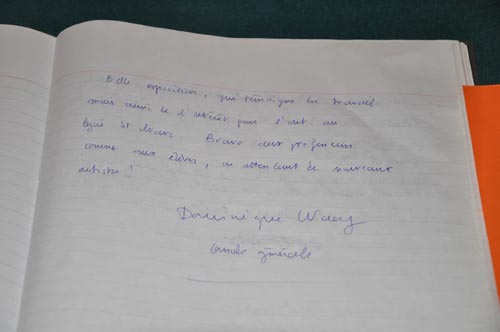 Belle exposition, qui témoigne du travail
mais aussi de l'intérêt pour l'art au
lycée St. Bravo aux professeurs
comme aux élèves, en attendant de nouveaux
artistes !
Dominique
générale